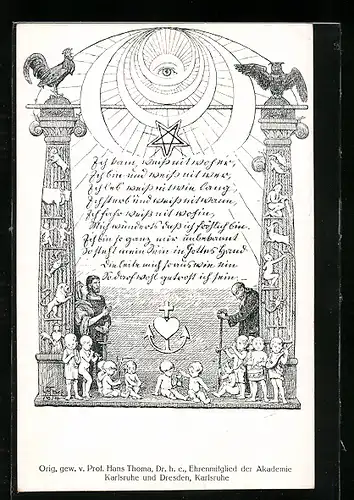 Ich kam, weiß nit woher,
Ich bin und weiß nit wer,
Ich leb weiß nit wie lang
Ich sterb und weiß nit wann,
Ich fahr weiß nit wohin,
Mich wunderts daß ich fröhlich bin.
Ich bin so ganz mir unbekannt
So steht mein Sein in Gottes Hand
Die leite mich so aus wie ein
So darf wohl getrost ich sein. –
Orig. gew. v. Prof. Hans Thoma, Dr. h. c., Ehrenmitglied der Akademie
Karlsruhe und Dresden, Karlsruhe